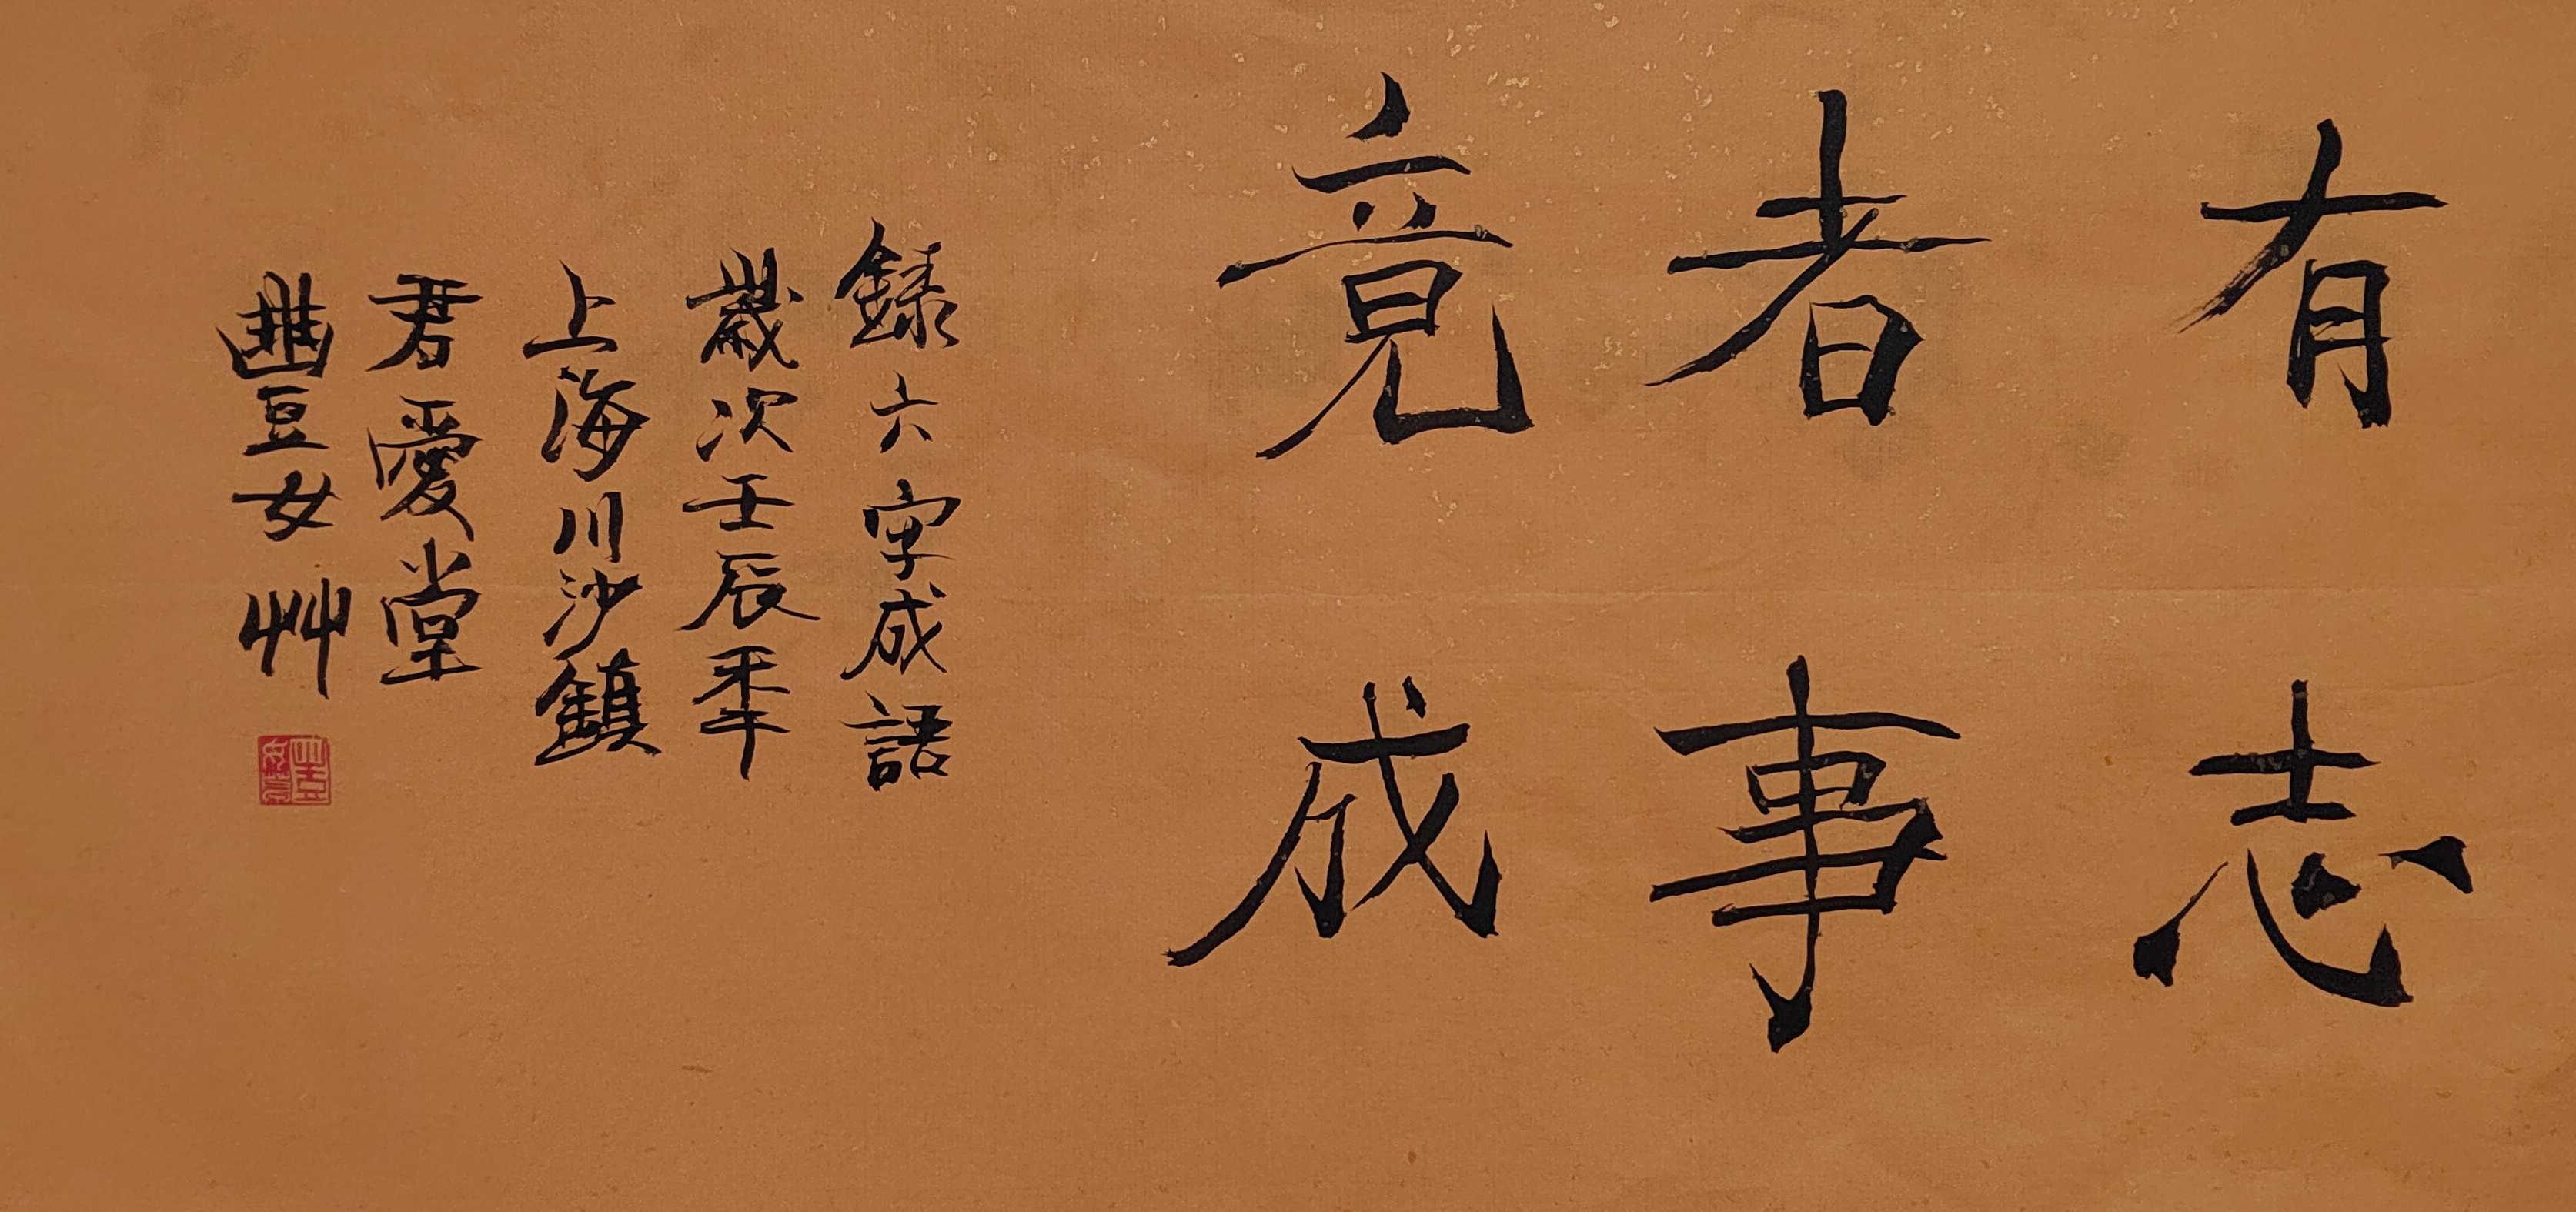 有志
者事
竟成
錄六字成語
歲次壬辰年
上海川沙鎮
君愛堂
豐女艸